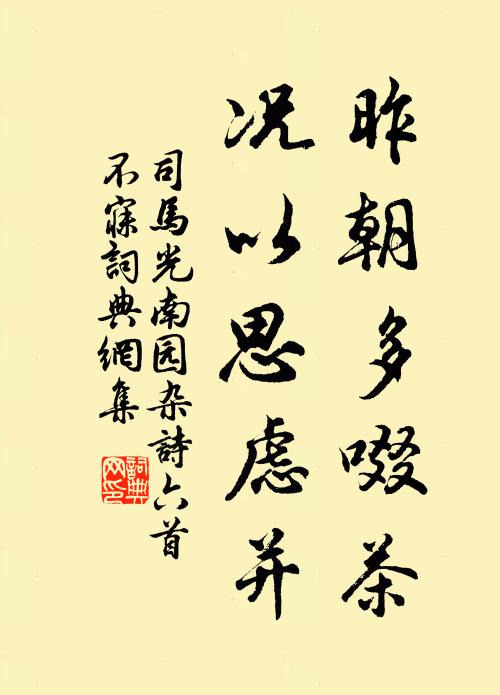 昨朝多啜茶
况以思虑并
司馬光南园杂詩六首
不寐詞典網集
詞典网印